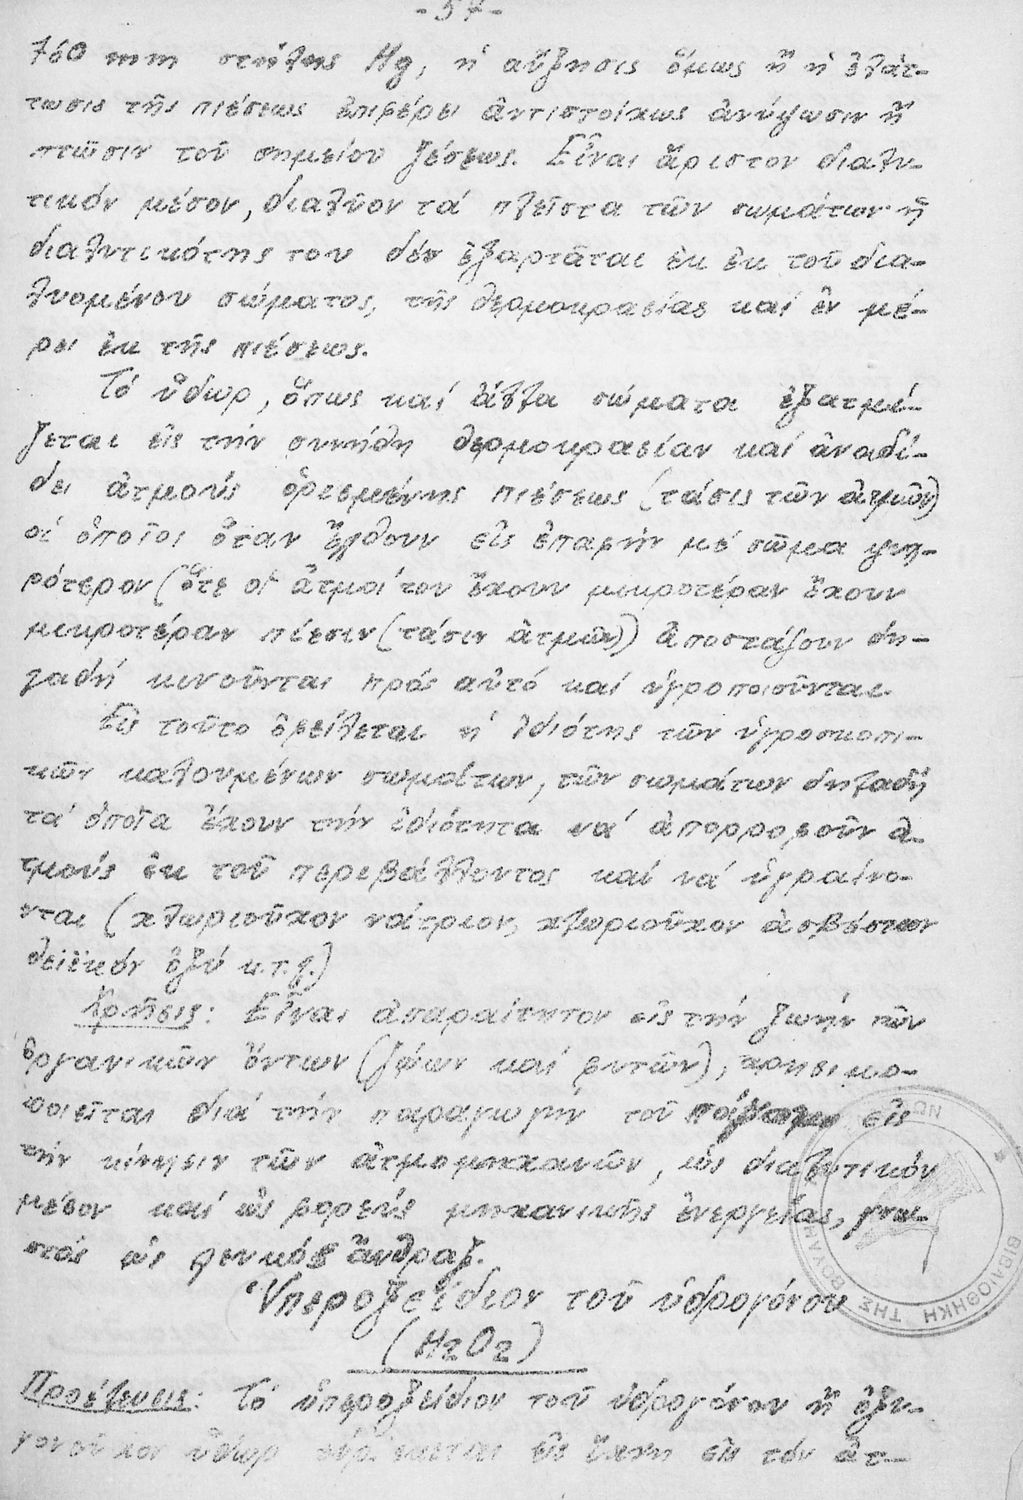 -57-
760 mm στήλης Hg, ἡ αὔξησις ὅμως ἤ ἡ ἐλάτ-
τωσις τῆς πιέσεως ἐπιφέρει ἀντιστοίχως ἀνύψωσιν ἤ
πτῶσιν τοῦ σημείου ζέσεως. Εἶναι ἄριστον διαλυ-
τικόν μέσον, διαλῦον τά πλεῖστα τῶν σωμάτων ἡ
διαλυτικότης του δέν ἐξαρτᾶται ἐκ ἐκ τοῦ δια-
λυομένου σώματος, τῆς θερμοκρασίας καί ἐν μέ-
ρει ἐκ τῆς πιέσεως.
Τό ὕδωρ, ὅπως καί ἄλλα σώματα ἐξατμί-
ζεται εἰς τήν συνήθη θερμοκρασίαν καί ἀναδί-
δει ἀτμούς ὁρισμένης πιέσεως (τάσις τῶν ἀτμῶν)
οἱ ὁποῖοι ὅταν ἔλθουν εἰς ἐπαφήν μέ σῶμα ψυχ-
ρότερον (ὅτε οἱ ἀτμοί του ἔχουν μικροτέραν ἔχουν
μικροτέραν πίεσιν (τάσιν ἀτμῶν)) ἀποστάζουν δη-
λαδή κινοῦνται πρός αὐτό καί ὑγροποιοῦνται.
Εἰς τοῦτο ὀφείλεται ἡ ἰδιότης τῶν ὑγροσκοπι-
κῶν καλουμένων σωμάτων, τῶν σωμάτων δηλαδή
τά ὁποῖα ἔχουν τήν ἰδιότητα νά ἀπορροφοῦν ἀ-
τμούς ἐκ τοῦ περιβάλλοντος καί νά ὑγραίνο-
νται (χλωριοῦχον νάτριον, χλωριοῦχον ἀσβέστιον
θειϊκόν ὀξύ κ.τ.λ.)
Χρῆσις: Εἶναι ἀπαραίτητον εἰς τήν ζωήν τῶν
ὀργανικῶν ὄντων (ζώων καί φυτῶν), χρησιμο-
ποιεῖται διά τήν παραγωγήν τοῦ εἰς
τήν κίνησιν τῶν ἀτμομηχανῶν, ὡς διαλυτικόν
μέσον καί ὡς φορεύς μηχανικῆς ἐνεργείας, γνω-
στός ὡς λευκός ἄνθραξ.
Ὑπεροξείδιον τοῦ ὑδρογόνου
(H2O2)
Προέλευσις: Τό ὑπεροξείδιον τοῦ ὑδρογόνου ἤ ὀξυ-
γονοῦχον ὕδωρ εἰς ἴχνη εἰς τόν ἀτ-
ΒΙΒΛΙΟΘΗΚΗ ΤΗΣ ΒΟΥΛΗΣ